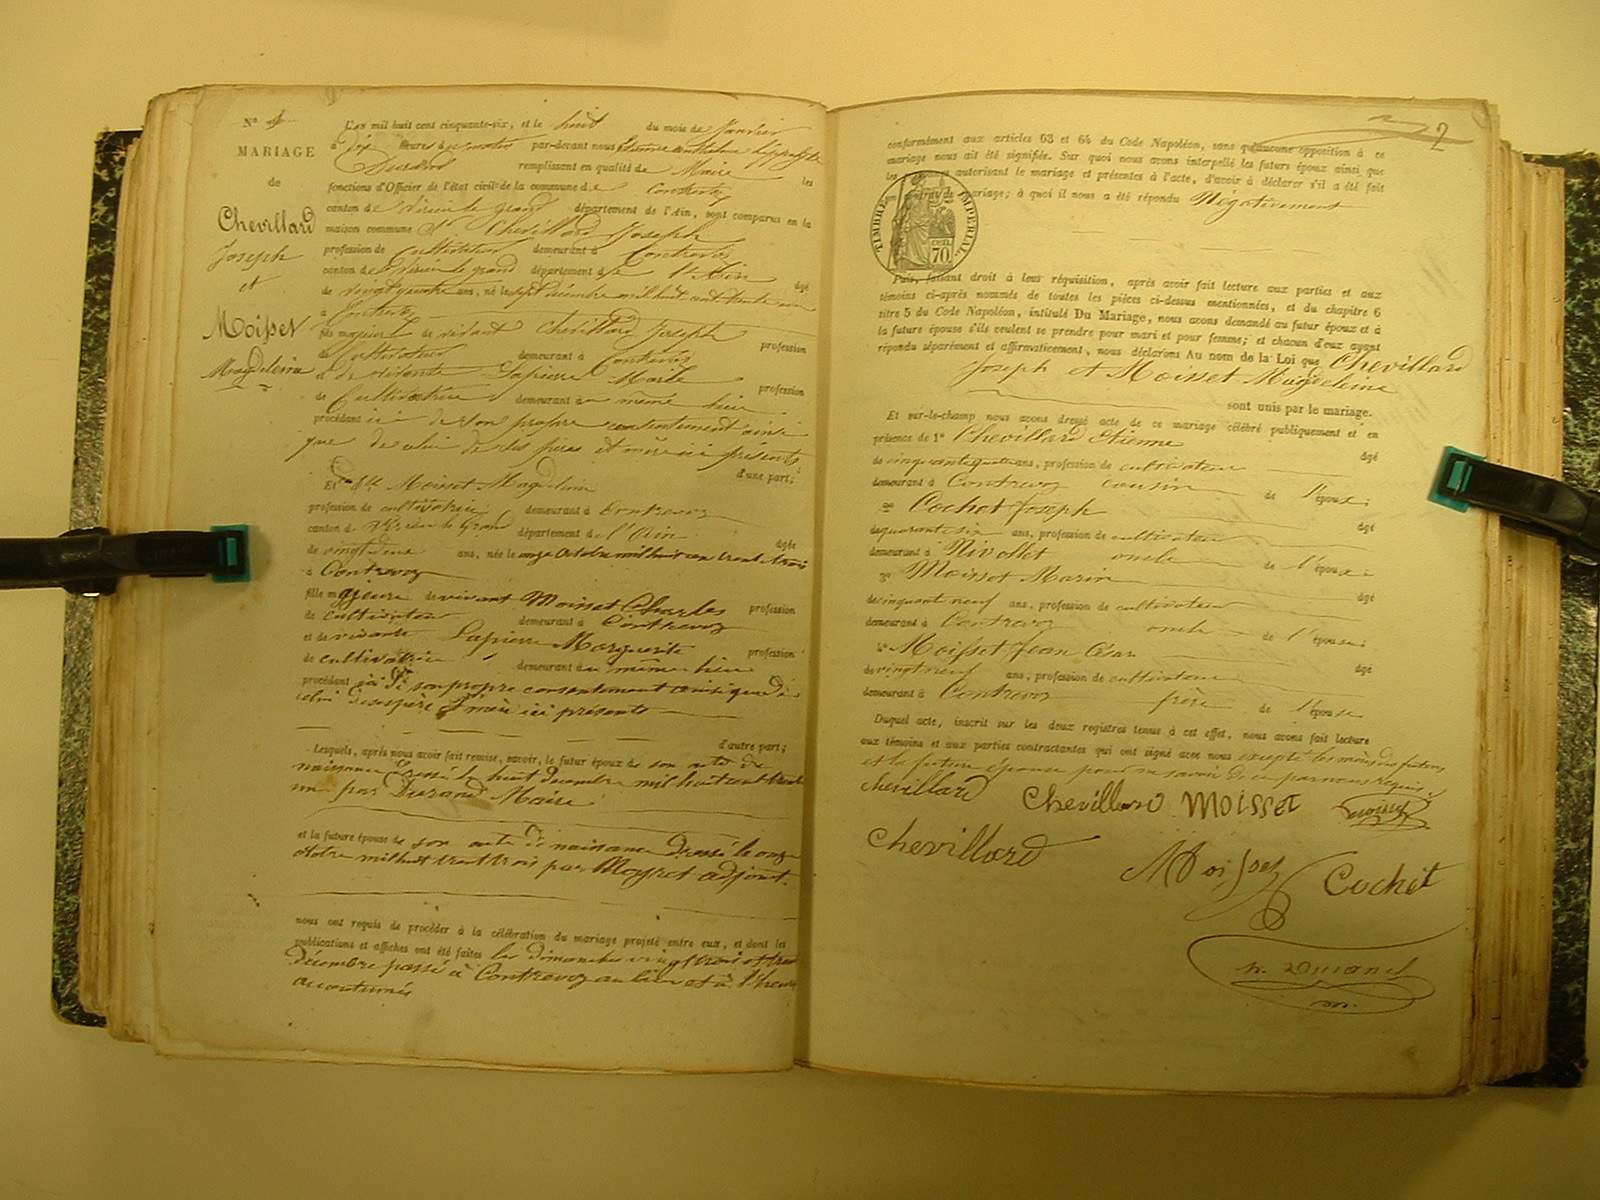 N° 1
MARIAGE
de
Chevillard
Joseph
et
Moisset
Magdeleine
L'an mil huit cent cinquante-six, et le huit du mois de Janvier
à dix heures du matin par-devant nous
Durand remplissant en qualité de Maire les
fonctions d'Officier de l'état civil de la commune de Contrevoz
canton de Virieu le grand département de l'Ain, sont comparus en la
maison commune Sr Chevillard Joseph
profession de cultivateur demeurant à Contrevoz
canton de Virieu le grand département de l'Ain âgé
de vingt quatre ans, né le sept décembre mil huit cent trente un
à Contrevoz
fils majeur de vivant Chevillard Joseph profession
de cultivateur demeurant à Contrevoz
et de vivante Lapierre Marie profession
de Cultivatrice demeurant au même lieu
procédant ici de son propre consentement ainsi
que de celui de ses père et mère ici présents
d'une part;
Et Dlle Moisset Magdeleine
profession de cultivatrice demeurant à Contrevoz
canton de Virieu le Grand département de l'Ain âgée
de vingt deux ans, née le onze octobre mil huit cent trente trois
à Contrevoz
fille majeure de vivant Moisset Charles profession
de cultivateur demeurant à Contrevoz
et de vivante Lapierre Marguerite profession
de cultivatrice demeurant au même lieu
procédant ici de son propre consentement ainsi que de
celui de ses père et mère ici présents
d'autre part;
Lesquels, après nous avoir fait remise, savoir, le futur époux de son acte de
naissance dressé le huit Décembre mil huit cent trente
un par Durand Maire
et la future épouse de son acte de naissance dressé le onze
octobre mil huit trent trois par Meyret adjoint.
nous ont requis de procéder à la célébration du mariage projeté entre eux, et dont les
publications et affiches ont été faites les dimanches vingt trois et trente
Décembre passé à Contrevoz au lieu et à l'heure
accoutumés
2
conformément aux articles 63 et 64 du Code Napoléon, sans qu'aucune opposition à ce
mariage nous ait été signifiée. Sur quoi nous avons interpellé les futurs époux ainsi que
les autorisant le mariage et présentes à l'acte, d'avoir à déclarer s'il a été fait
un contrat de mariage; à quoi il nous a été répondu Négativement
TIMBRE IMPERIAL
CENT.
70
Puis, faisant droit à leur réquisition, après avoir fait lecture aux parties et aux
témoins ci-après nommés de toutes les pièces ci-dessus mentionnées, et du chapitre 6
titre 5 du Code Napoléon, intitulé Du Mariage, nous avons demandé au futur époux et à
la future épouse s'ils veulent se prendre pour mari et pour femme; et chacun d'eux ayant
répondu séparément et affirmativement, nous déclarons Au nom de la Loi que Chevillard
Joseph et Moisset Magdeleine
sont unis par le mariage.
Et sur-le-champ nous avons dressé acte de ce mariage célébré publiquement et en
présence de 1° Chevillard Etienne âgé
de cinquante quatre ans, profession de cultivateur
demeurant à Contrevoz cousin de l'époux;
2° Cochet Joseph âgé
de quarante six ans, profession de cultivateur
demeurant à Nivollet oncle de l'époux;
3° Moisset Marin âgé
de cinquant neuf ans, profession de cultivateur
demeurant à Contrevoz oncle de l'épouse;
4° Moisset Jean César âgé
de vingt neuf ans, profession de cultivateur
demeurant à Contrevoz frère de l'épouse
Duquel acte, inscrit sur les deux registres tenus à cet effet, nous avons fait lecture
aux témoins et aux parties contractantes qui ont signé avec nous excepté les mères des futurs
et la future épouse pour ne savoir de ce par nous requis.
Chevillard Chevillard Moisset Moisset
Chevillard Moisset Cochet
h. Durand